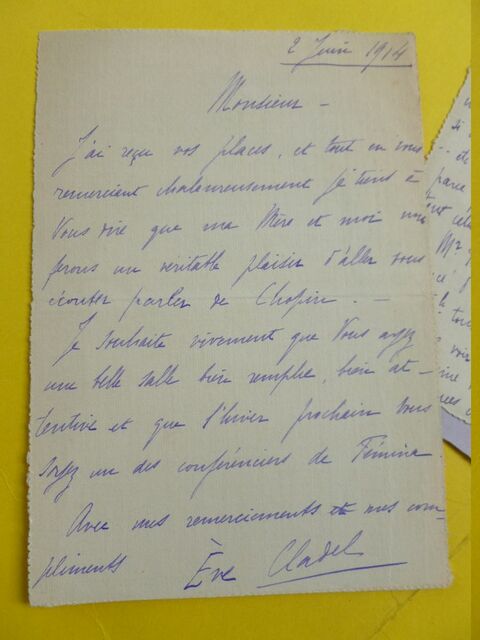 2 Juin 1914
Monsieur -
J'ai reçu vos places, et tout en vous
remerciant chaleureusement je tiens à
Vous dire que ma Mère et moi nous
ferons un véritable plaisir d'aller vous
écouter parler de Chopin. -
Je souhaite vivement que Vous ayez
une belle salle bien remplie, bien at-
tentive et que l'hiver prochain Vous
soyez un des conférenciers de Fémina
Avec mes remerciements et mes com-
pliments
Ève Cladel